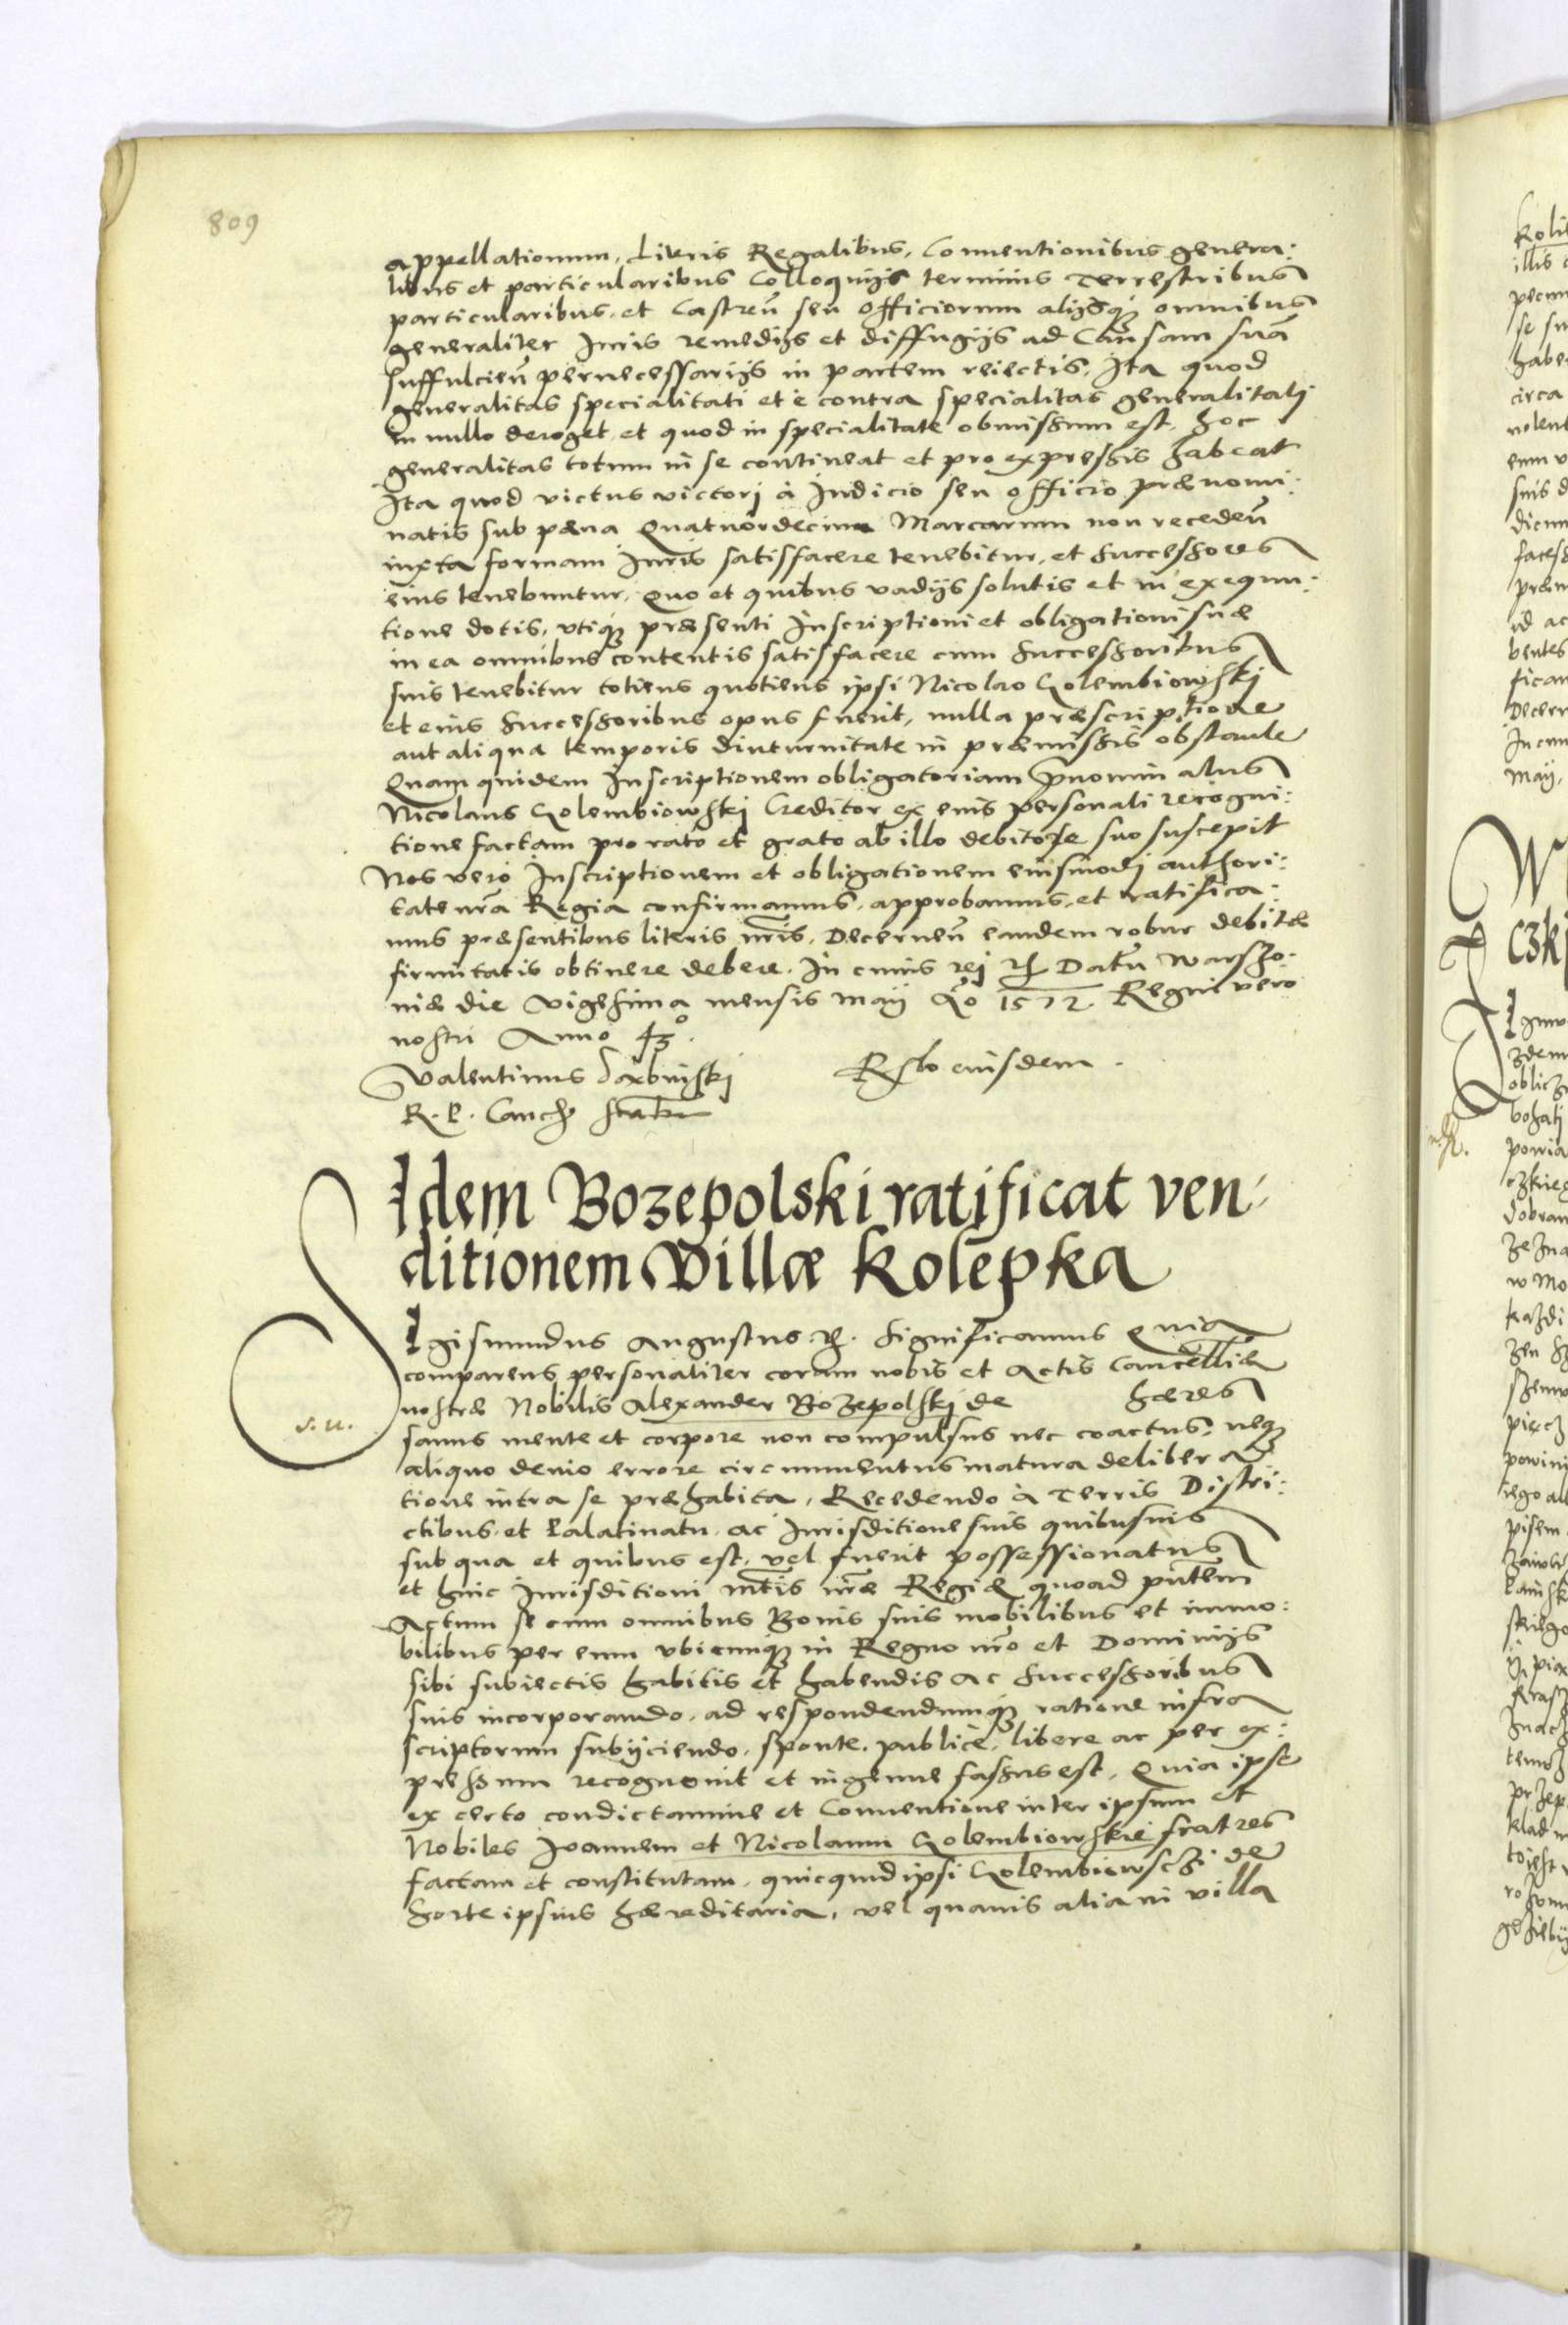 809
appellationum, Literis Regalibus, Conuentionibus genera:
libus et particularibus Colloquijs terminis Terrestribus
particularibus, et Castreñ seu Officiorum alijsq3 omnibus
generaliter Juris remedijs et diffugijs ad Causam suã
suffulcieñ pernecessarijs in partem reiectis, Ita quod
generalitas specialitati et è contra specialitas generalitatj
in nullo deroget, et quod in specialitate obmissum est, hoc
generalitas totum in se contineat et pro expressis habeat
Ita quod victus victorj à Judicio seu officio prænomi:
natis sub pæna Quatuordecim Marcarum non recedeñ
iuxta formam Juris satisfacere tenebitur, et successores
eius tenebuntur, Quo et quibus vadijs solutis et in exequu:
tione dotis, vtiq3 præsenti Inscriptioni et obligationi suæ
in ea omnibus contentis satisfacere cum successoribus
suis tenebitur totiens quotiens ipsi Nicolao Golembiowskj
et eius successoribus opus fuerit, nulla præscriptione
aut aliqua temporis diuturnitate in præmissis obstante
Quam quidem Inscriptionem obligatoriam p̃nominatus
Nicolaus Golembiowskj Creditor ex eius personali recogni:
tione factam pro rato et grato ab illo debitore suo suscepit
Nos vero Inscriptionem et obligationem eiusmodj authori:
tate nr̃a Regia confirmamus, approbamus, et ratifica:
mus præsentibus literis nr̃is, Decerneñ eandem robur debitæ
firmitatis obtinere debere. In cuius rej etc Datũ Warszo:
niæ die vigesima mensis maij Aº 1572. Regni vero
nostri Anno 43º.
Valentinus Dæbinskj
R. P. Canc
Rlo eiusdem.
Idem Bozepolski ratificat ven:
ditionem Villæ Kolepka
s. u.
SIgismundus Augustus etc. significamus Quia
comparens personaliter coram nobis et Actis Cancellariæ
nostræ Nobilis Alexander Bozepolskj de hæres
sanus mente et corpore non compulsus nec coactus, neq3
aliquo deuio errore circumuentus matura delibera
tione intra se præhabita, Recedendo à Terris Distri:
ctibus, et Palatinatu, ac Jurisditione suis quibusuis
sub qua et quibus est, vel fuerit possessionatus
et huic Jurisditioni mt̃is nr̃æ Regiæ quoad pñtem
Actum se cum omnibus Bonis suis mobilibus et immo:
bilibus per eum vbicunq3 in Regno nr̃o et Dominijs
sibi subiectis habitis et habendis ac successoribus
suis incorporando, ad respondendumq3 ratione infra
scriptorum subijciendo, sponte, publicè, libere ac per ex:
pressum recognouit et ingenue fassus est, Quia ipse
ex certo condictamine et Conuentione inter ipsum et
Nobiles Ioannem et Nicolaum Golembiowskie fratres
factam et constitutam, quicquid ipsi Golembiowsczi de
sorte ipsius hæreditaria, vel quauis alia in villa